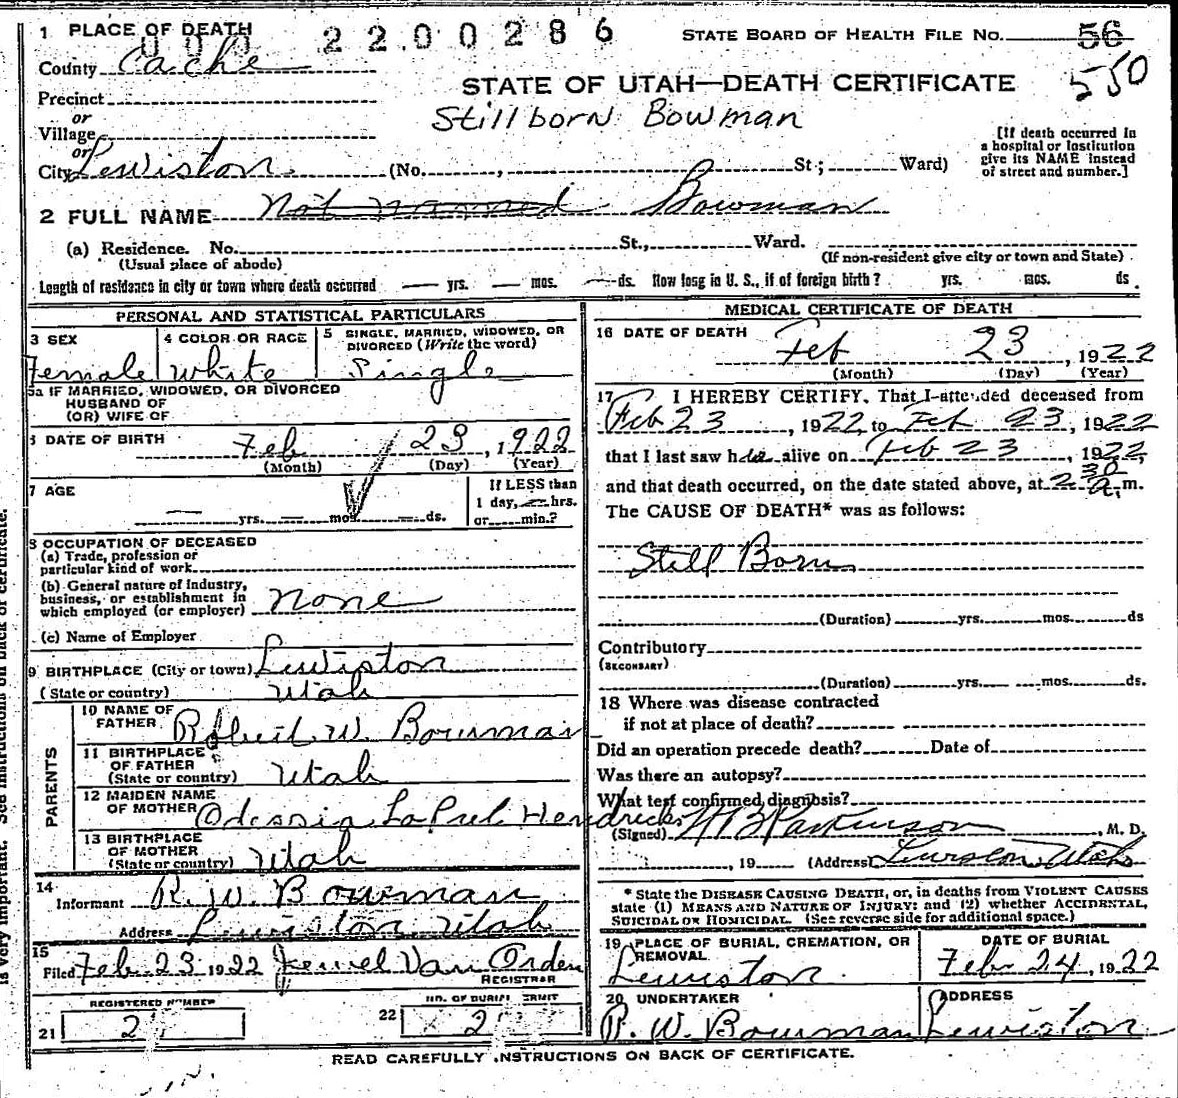 1 PLACE OF DEATH 2200286 STATE BOARD OF HEALTH FILE NO. 56
County Cache 550
STATE OF UTAH—DEATH CERTIFICATE
Precinct
or Stillborn Bowman
Village
or
City Lewiston (No. , St; Ward)
[If death occurred in
a hospital or institution
give its NAME instead
of street and number.]
2 FULL NAME Not named Bowman
(a) Residence. No. St., Ward.
(Usual place of abode) (If non-resident give city or town and State)
Length of residence in city or town where death occurred — yrs. — mos. — ds. How long in U. S., if of foreign birth? yrs. mos. ds.
PERSONAL AND STATISTICAL PARTICULARS
3 SEX 4 COLOR OR RACE 5 SINGLE, MARRIED, WIDOWED, OR
DIVORCED (Write the word)
Female White Single
5a IF MARRIED, WIDOWED, OR DIVORCED
HUSBAND OF
(OR) WIFE OF
6 DATE OF BIRTH Feb 23, 1922
(Month) (Day) (Year)
7 AGE If LESS than
1 day, — hrs.
— yrs. — mos. — ds. or min.?
8 OCCUPATION OF DECEASED
(a) Trade, profession or
particular kind of work
(b) General nature of Industry,
business, or establishment in
which employed (or employer) None
(c) Name of Employer
9 BIRTHPLACE (City or town) Lewiston
(State or country) Utah
PARENTS
10 NAME OF
FATHER Robert W. Bowman
11 BIRTHPLACE
OF FATHER
(State or country) Utah
12 MAIDEN NAME
OF MOTHER Odessia LaPrel Hendricks
13 BIRTHPLACE
OF MOTHER
(State or country) Utah
14
Informant R. W. Bowman
Address Lewiston Utah
15
Filed Feb 23 1922 Jewel Van Orden
REGISTRAR
REGISTERED NUMBER NO. OF BURIAL PERMIT
21 2 22 2
MEDICAL CERTIFICATE OF DEATH
16 DATE OF DEATH Feb 23, 1922
(Month) (Day) (Year)
17 I HEREBY CERTIFY, That I attended deceased from
Feb 23, 1922, to Feb 23, 1922
that I last saw h alive on Feb 23, 1922,
and that death occurred, on the date stated above, at 2 30 a. m.
The CAUSE OF DEATH* was as follows:
Still Born
(Duration) yrs. mos. ds
Contributory
(SECONDARY)
(Duration) yrs. mos. ds.
18 Where was disease contracted
if not at place of death?
Did an operation precede death? Date of
Was there an autopsy?
What test confirmed diagnosis?
(Signed) W B Parkinson, M. D.
, 19 (Address) Lewiston Utah
* State the DISEASE CAUSING DEATH, or, in deaths from VIOLENT CAUSES
state (1) MEANS AND NATURE OF INJURY; and (2) whether ACCIDENTAL,
SUICIDAL OR HOMICIDAL. (See reverse side for additional space.)
19 PLACE OF BURIAL, CREMATION, OR
REMOVAL DATE OF BURIAL
Lewiston Feb 24, 1922
20 UNDERTAKER ADDRESS
R. W. Bowman Lewiston
READ CAREFULLY INSTRUCTIONS ON BACK OF CERTIFICATE.
is very important. See instructions on back of certificate.